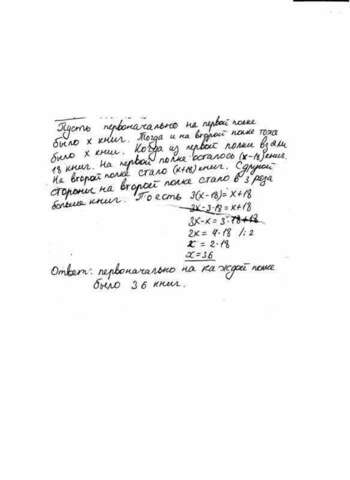 Пусть первоначально на первой полке
было х книг. Тогда и на второй полке тоже
было х книг. Когда из первой полки взяли
18 книг. На первой полке осталось (х-18) книг.
На второй полке стало (х+18) книг. С другой
стороны на второй полке стало в 3 раза
больше книг. То есть 3(х-18)=х+18
3х-3·18=х+18
3х-х=3·18+18
2х = 4·18 /:2
х = 2·18
х=36
Ответ: первоначально на каждой полке
было 36 книг.